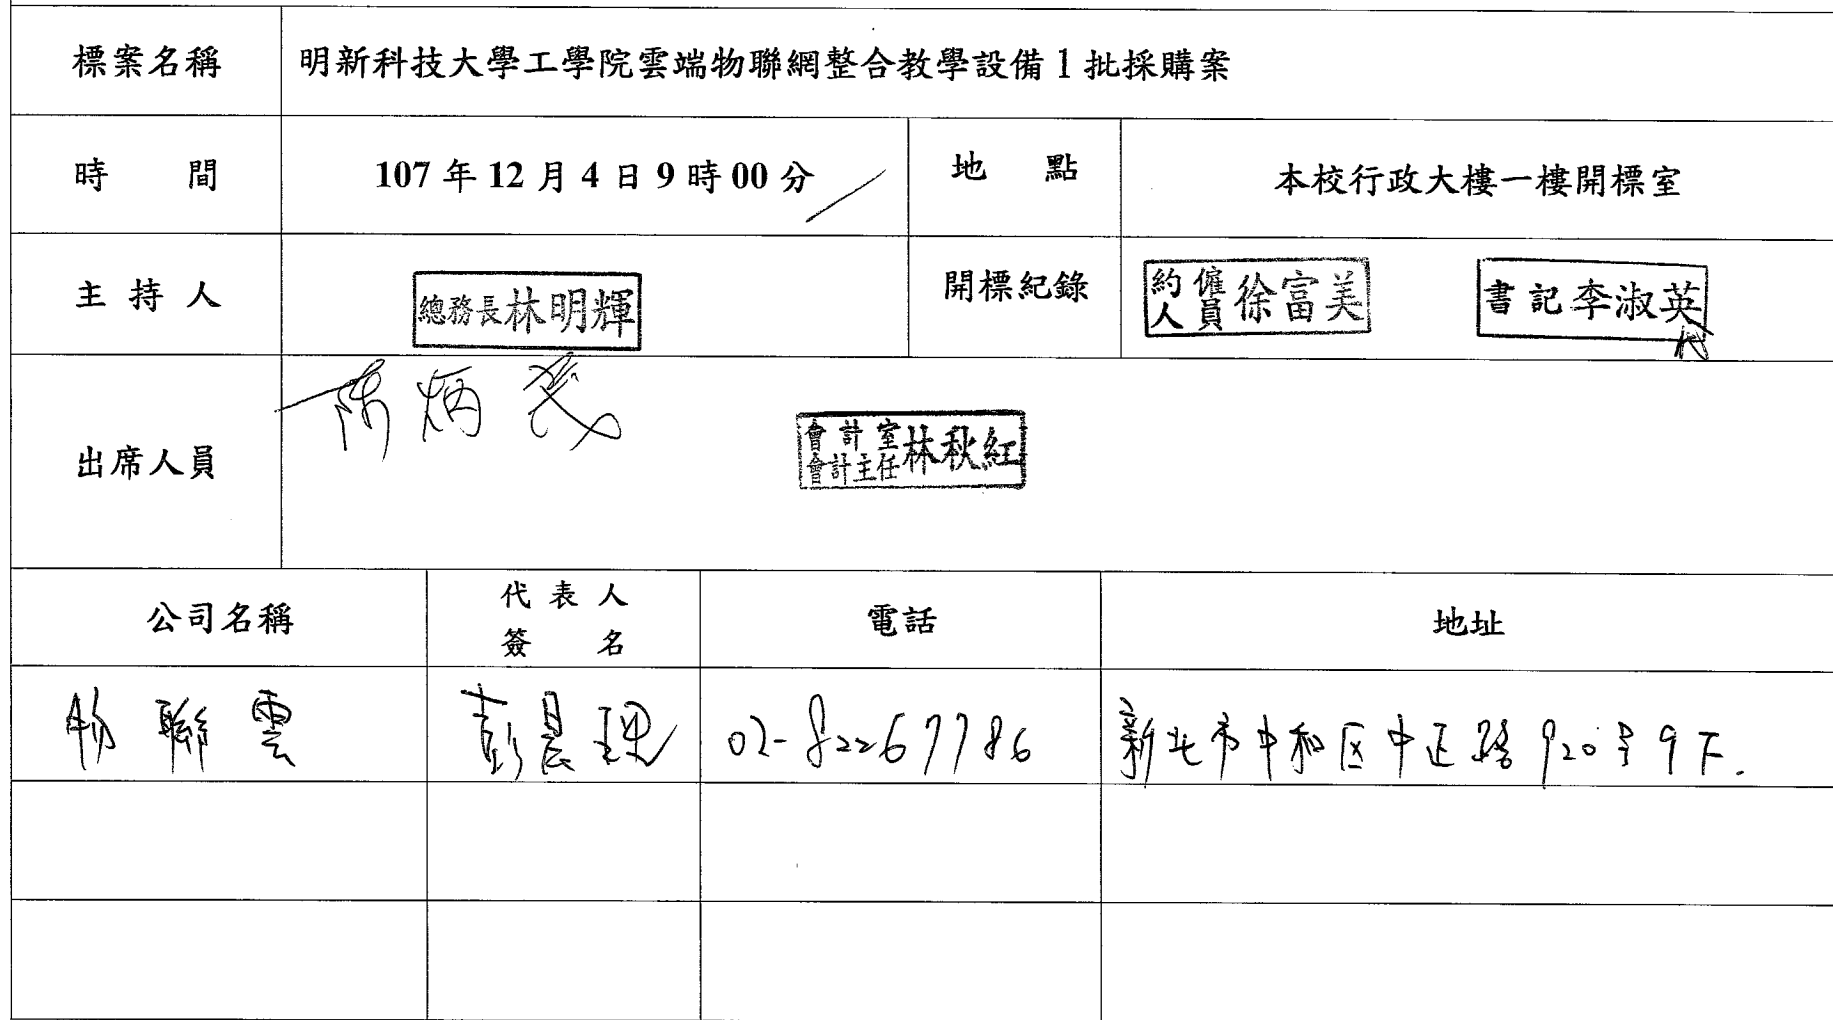 標案名稱 明新科技大學工學院雲端物聯網整合教學設備1批採購案
時間 107年12月4日9時00分 地點 本校行政大樓一樓開標室
主持人 總務長林明輝 開標紀錄 約僱人員徐富美 書記李淑英代
出席人員 陳炳茂 會計室會計主任林秋紅
公司名稱 代表人簽名 電話 地址
物聯雲 彭晨理 02-82267786 新北市中和区中正路920号9F.